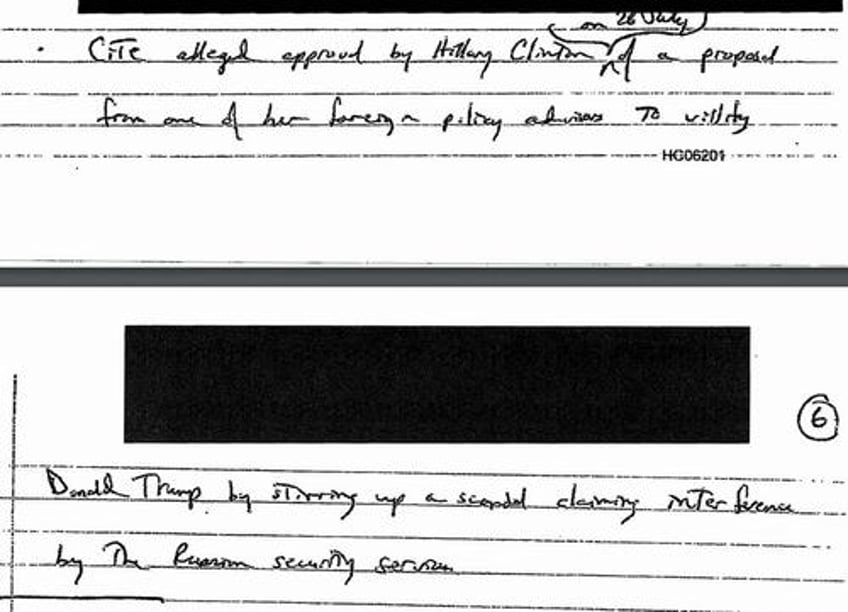 on 26 July
• CITE alleged approval by Hillary Clinton of a proposal
from one of her foreign policy advisors to villify
HG06201
6
Donald Trump by stirring up a scandal claiming interference
by the Russian security services